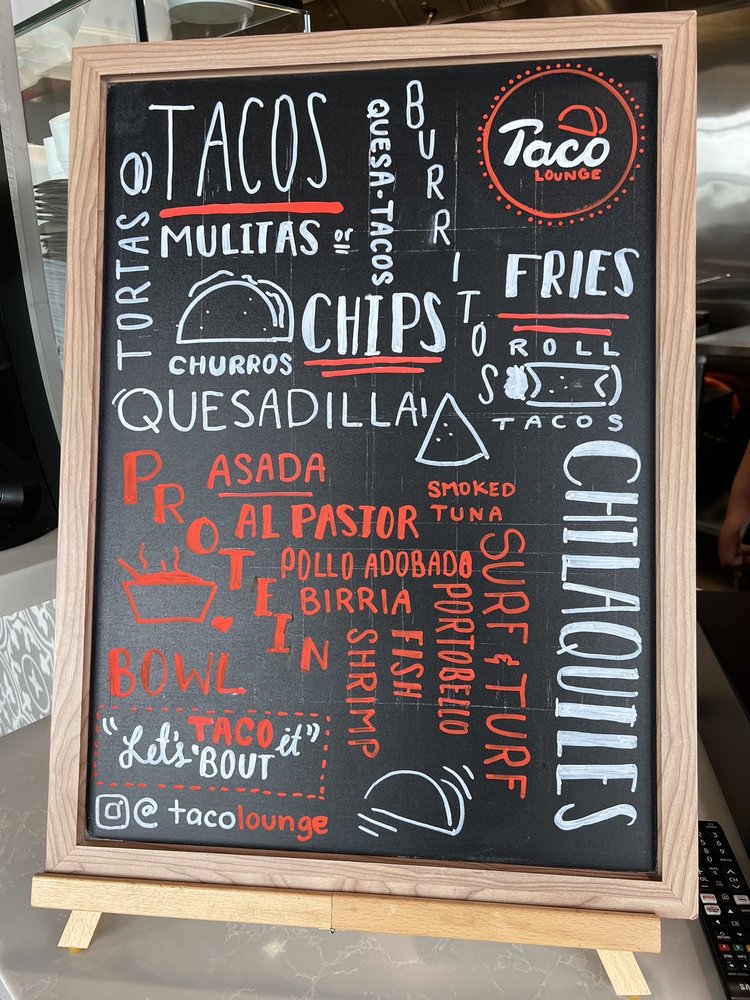 TACOS
MULITAS or
TORTAS
QUESA·TACOS
BURRITOS
Taco
LOUNGE
FRIES
CHIPS
CHURROS
ROLL
TACOS
QUESADILLA
PROTEIN
BOWL
ASADA
AL PASTOR
POLLO ADOBADO
BIRRIA
SMOKED
TUNA
SHRIMP
FISH
PORTOBELLO
SURF & TURF
CHILAQUILES
"Let's TACO
'BOUT it"
@tacolounge